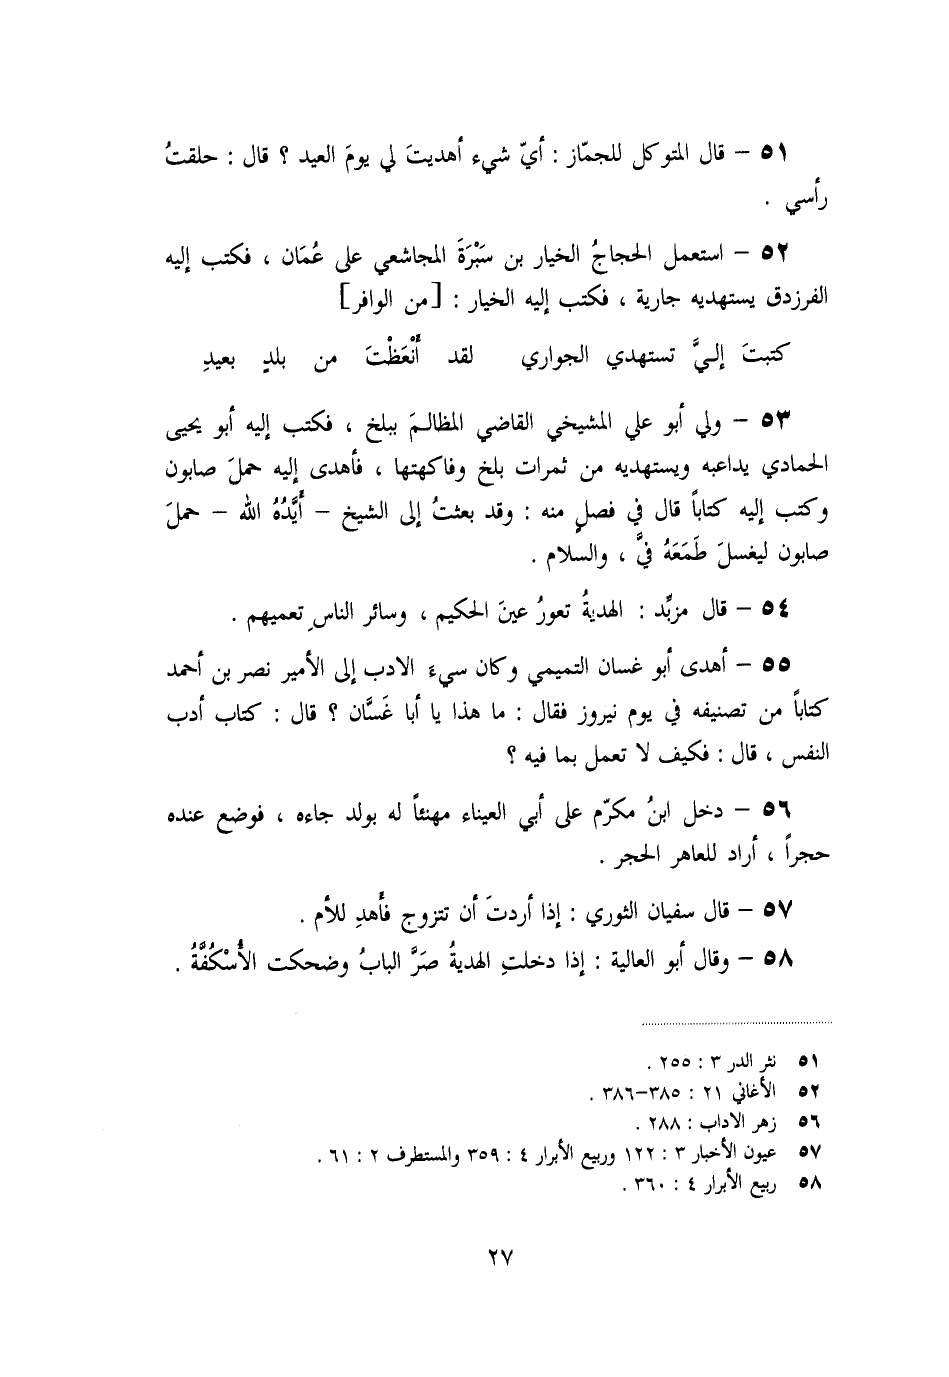 ٥١ – قال المتوكل للجمّاز : أيّ شيء أهديتَ لي يومَ العيد ؟ قال : حلقتُ
رأسي .
٥٢ – استعمل الحجاجُ الخيار بن سَبْرَةَ المجاشعي على عُمَان ، فكتب إليه
الفرزدق يستهديه جارية ، فكتب إليه الخيار : [من الوافر]
كتبتَ إليَّ تستهدي الجواري لقد أَنْعَظْتَ من بلدٍ بعيدِ
٥٣ – ولي أبو علي المشيخي القاضي المظالمَ ببلخ ، فكتب إليه أبو يحيى
الحمادي يداعبه ويستهديه من ثمرات بلخ وفاكهتها ، فأهدى إليه حملَ صابون
وكتب إليه كتاباً قال في فصلٍ منه : وقد بعثتُ إلى الشيخ – أَيَّدَهُ الله – حملَ
صابون ليغسلَ طَمَعَهُ فيَّ ، والسلام .
٥٤ – قال مزبِّد : الهديةُ تعورُ عينَ الحكيم ، وسائر الناسِ تعميهم .
٥٥ – أهدى أبو غسان التميمي وكان سيءَ الادب إلى الأمير نصر بن أحمد
كتاباً من تصنيفه في يوم نيروز فقال : ما هذا يا أبا غَسَّان ؟ قال : كتاب أدب
النفس ، قال : فكيف لا تعمل بما فيه ؟
٥٦ – دخل ابنُ مكرّم على أبي العيناء مهنئاً له بولد جاءه ، فوضع عنده
حجراً ، أراد للعاهر الحجر .
٥٧ – قال سفيان الثوري : إذا أردتَ أن تتزوج فأَهدِ للأم .
٥٨ – وقال أبو العالية : إذا دخلتِ الهديةُ صَرَّ البابُ وضحكت الأُسْكُفَّةُ .
٥١ نثر الدر ٣ : ٢٥٥ .
٥٢ الأغاني ٢١ : ٣٨٥–٣٨٦ .
٥٦ زهر الاداب : ٢٨٨ .
٥٧ عيون الأخبار ٣ : ١٢٢ وربيع الأبرار ٤ : ٣٥٩ والمستطرف ٢ : ٦١ .
٥٨ ربيع الأبرار ٤ : ٣٦٠ .
٢٧